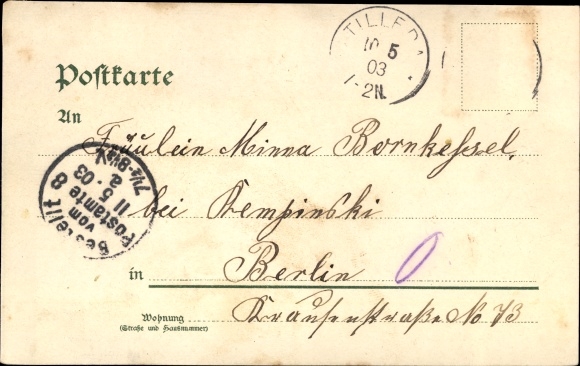 TILLEDA
10 5
03
1-2N.
Postkarte
An
Fräulein Minna Bornkessel,
bei Kempinski
in Berlin
Wohnung
(Straße und Hausnummer)
Krausenstraße No 73
Bestellt
vom
Postamte 8
11 5 03
7½-8½V